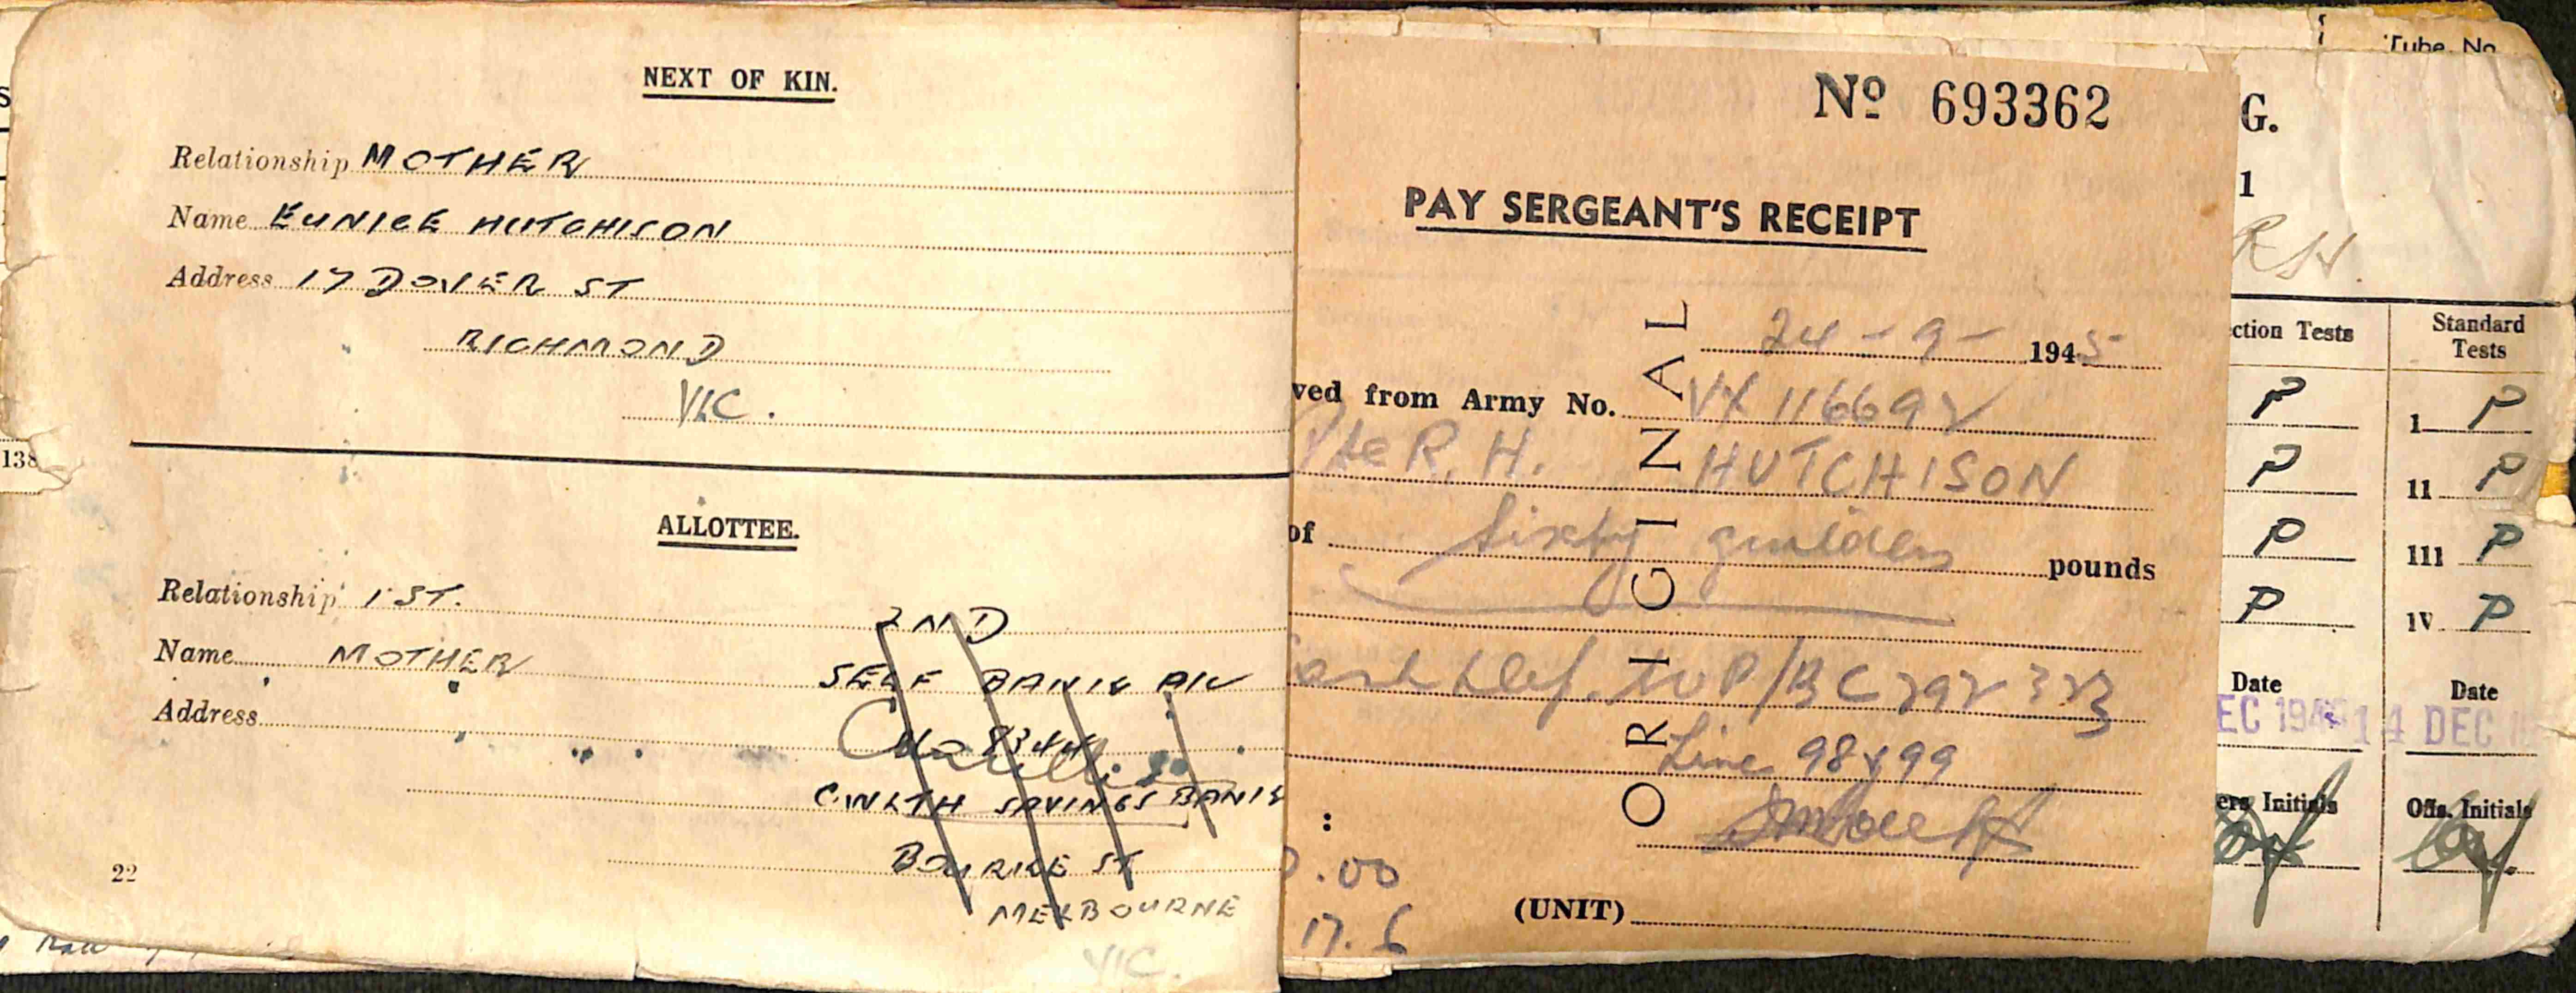 NEXT OF KIN.
Relationship MOTHER
Name EUNICE HUTCHISON
Address 17 DOVER ST
RICHMOND
VIC.
ALLOTTEE.
Relationship 1ST.
2ND
Name MOTHER
SELF BANK A/C
Address
No 8344
CWLTH SAVINGS BANK
BOURKE ST
MELBOURNE
VIC.
22
138
Nº 693362
PAY SERGEANT'S RECEIPT
ORIGINAL
24-9-1945
ved from Army No. VX 116692
Pte R. H. HUTCHISON
of sixty guilders pounds
Line 98 & 99
:
.00
17.6
(UNIT)
Tube No
G.
1
RH.
ction Tests Standard Tests
P I P
P II P
P III P
P IV P
Date Date
EC 194 14 DEC
ers Initials Offs. Initials